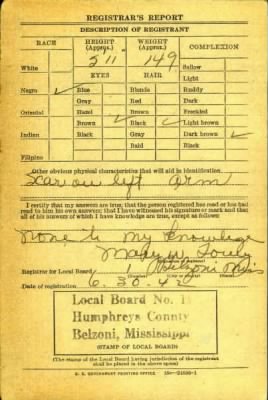 REGISTRAR'S REPORT
DESCRIPTION OF REGISTRANT
RACE HEIGHT (Approx.) WEIGHT (Approx.) COMPLEXION
5 11 149
White Sallow
EYES HAIR Light
Negro ✓ Blue Blonde Ruddy
Gray Red Dark
Oriental Hazel Brown Freckled
Brown ✓ Black ✓ Light brown
Indian Black Gray Dark brown ✓
Bald Black
Filipino
Other obvious physical characteristics that will aid in identification
Scar on left arm
I certify that my answers are true; that the person registered has read or has had
read to him his own answers; that I have witnessed his signature or mark and that
all of his answers of which I have knowledge are true, except as follows:
None to my knowledge
Mary
Registrar for Local Board Belzoni Miss
(Number) (City or county) (State)
Date of registration 6-30-42
Local Board No. 1
Humphreys County
Belzoni, Mississippi
(STAMP OF LOCAL BOARD)
(The stamp of the Local Board having jurisdiction of the registrant
shall be placed in the above space)
U. S. GOVERNMENT PRINTING OFFICE 16—21630-1